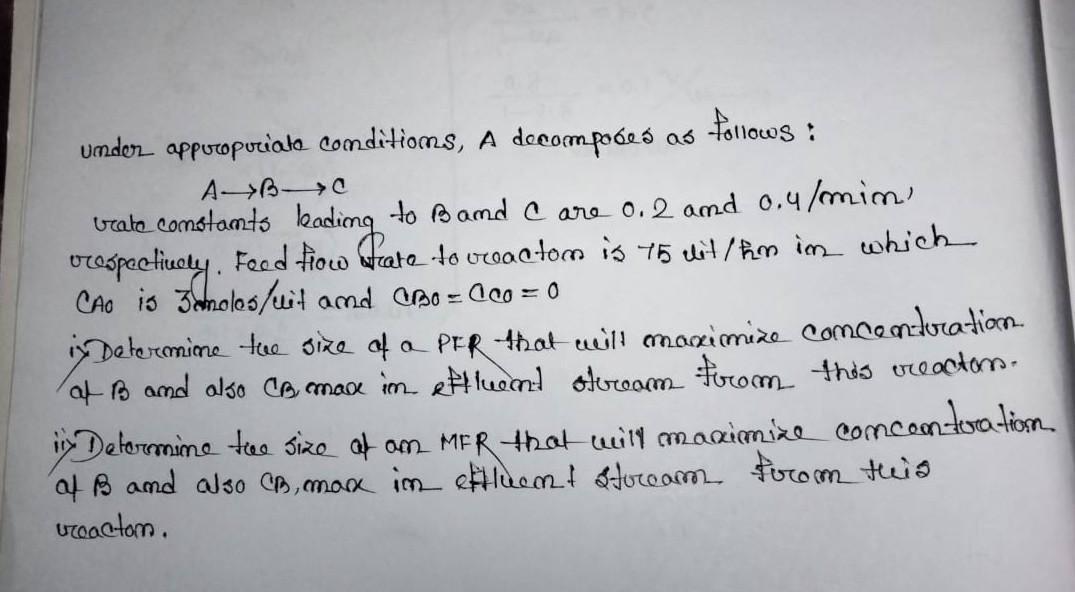 under appropriate conditions, A decomposes as follows :
A→B→C
rate constants leading to B and C are 0.2 and 0.4/min,
respectively. Feed flow rate to reactor is 75 lit/hr in which
CAO is 3 moles/lit and CBO = CCO = 0
i) Determine the size of a PFR that will maximize concentration
of B and also CB, max in effluent stream from this reactor.
ii) Determine the size of an MFR that will maximize concentration
of B and also CB, max in effluent stream from this
reactor.